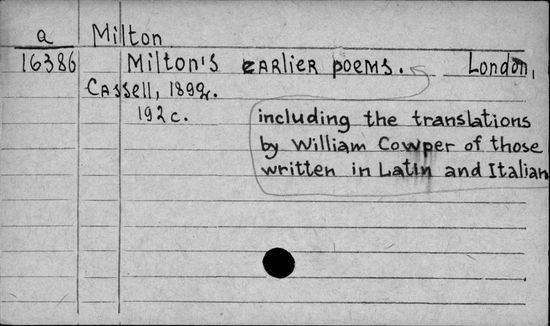 a Milton
16386 Milton's earlier poems. London,
Cassell, 1892.
192c.
including the translations
by William Cowper of those
written in Latin and Italian